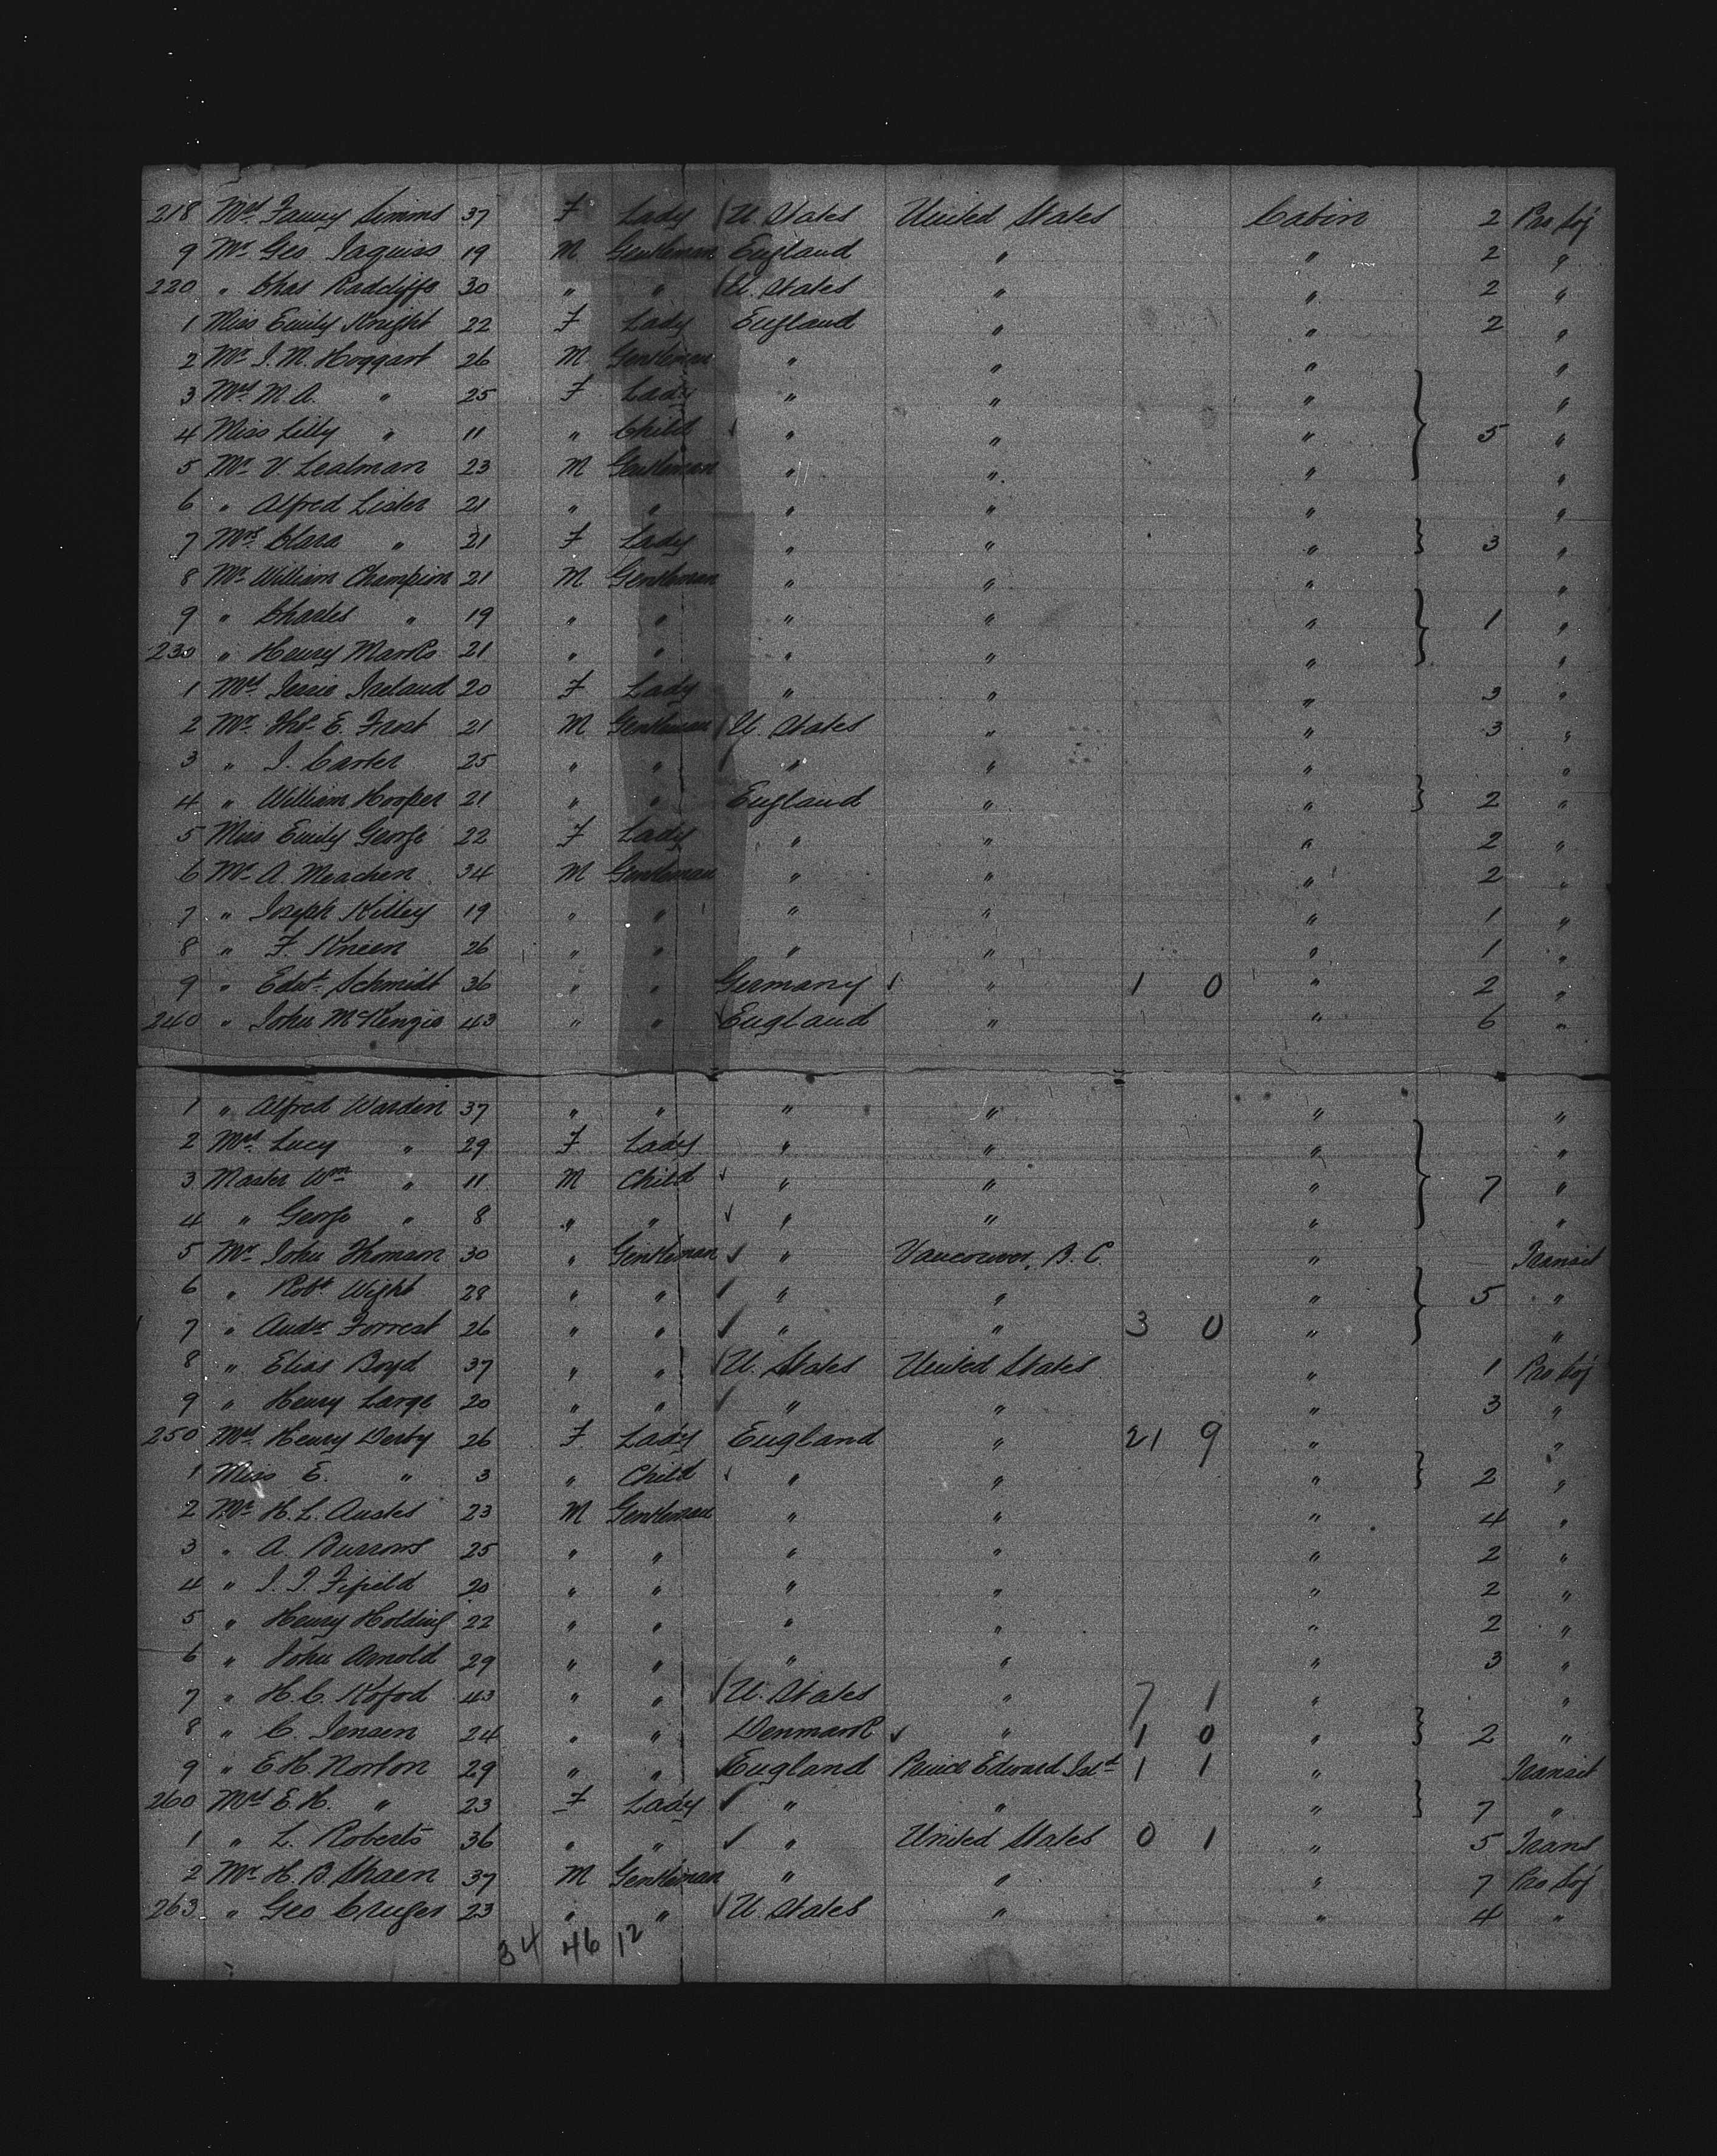 218 Mrs Fanny Simms 37 F Lady U. States United States Cabin 2 Pro Soj
9 Mr Geo Jaquiss 19 M Gentleman England " " 2 "
220 " Chas Radcliffe 30 " " U. States " " 2 "
1 Miss Emily Knight 22 F Lady England " " 2 "
2 Mr J. M. Hoggart 26 M Gentleman " " " "
3 Mrs M. A. " 25 F Lady " " " "
4 Miss Lilly " 11 " Child " " " 5 "
5 Mr V. Lealman 23 M Gentleman " " " "
6 " Alfred Lister 21 " " " " " "
7 Mrs Clara " 21 F Lady " " " 3 "
8 Mr William Champion 21 M Gentleman " " " "
9 " Charles " 19 " " " " " 1 "
230 " Henry Marks 21 " " " " " "
1 Mrs Jessie Ireland 20 F Lady " " " 3 "
2 Mr Thos E. Frost 21 M Gentleman U. States " " 3 "
3 " J. Carter 25 " " " " " "
4 " William Hooper 21 " " England " " 2 "
5 Miss Emily George 22 F Lady " " " 2 "
6 Mr A. Meachen 34 M Gentleman " " " 2 "
7 " Joseph Killey 19 " " " " " 1 "
8 " F. Kneen 26 " " " " " 1 "
9 " Edwd Schmidt 36 " " Germany " 1 0 " 2 "
240 " John McKenzie 43 " " England " " 6 "
1 " Alfred Warden 37 " " " " " "
2 Mrs Lucy " 29 F Lady " " " "
3 Master Wm " 11 M Child " " " 7 "
4 " George " 8 " " " " " "
5 Mr John Thomson 30 " Gentleman " Vancouver, B. C. " Transit
6 " Robt Wight 28 " " " " " 5 "
7 " Andw Forrest 26 " " " " 3 0 " "
8 " Elias Boyd 37 " " U. States United States " 1 Pro Soj
9 " Henry Large 20 " " " " " 3 "
250 Mrs Henry Derby 26 F Lady England " 21 9 " "
1 Miss E. " 3 " Child " " " 2 "
2 Mr H. L. 23 M Gentleman " " " 4 "
3 " A. Burrows 25 " " " " " 2 "
4 " J. J. Fifield 20 " " " " " 2 "
5 " Henry Holding 22 " " " " " 2 "
6 " John Arnold 29 " " " " " 3 "
7 " H. C. Koford 43 " " U. States " 7 1 " "
8 " C. Jensen 24 " " Denmark " 1 0 " 2 "
9 " E H. Norton 29 " " England Prince Edward Isld 1 1 " Transit
260 Mrs E. H. " 23 F Lady " " " 7 "
1 " L. Roberts 36 " " " United States 0 1 " 5 Trans
2 Mr H. B. 37 M Gentleman " " " 7 Pro Soj
263 " Geo Cruger 23 " " U. States " " 4 "
34 46 12